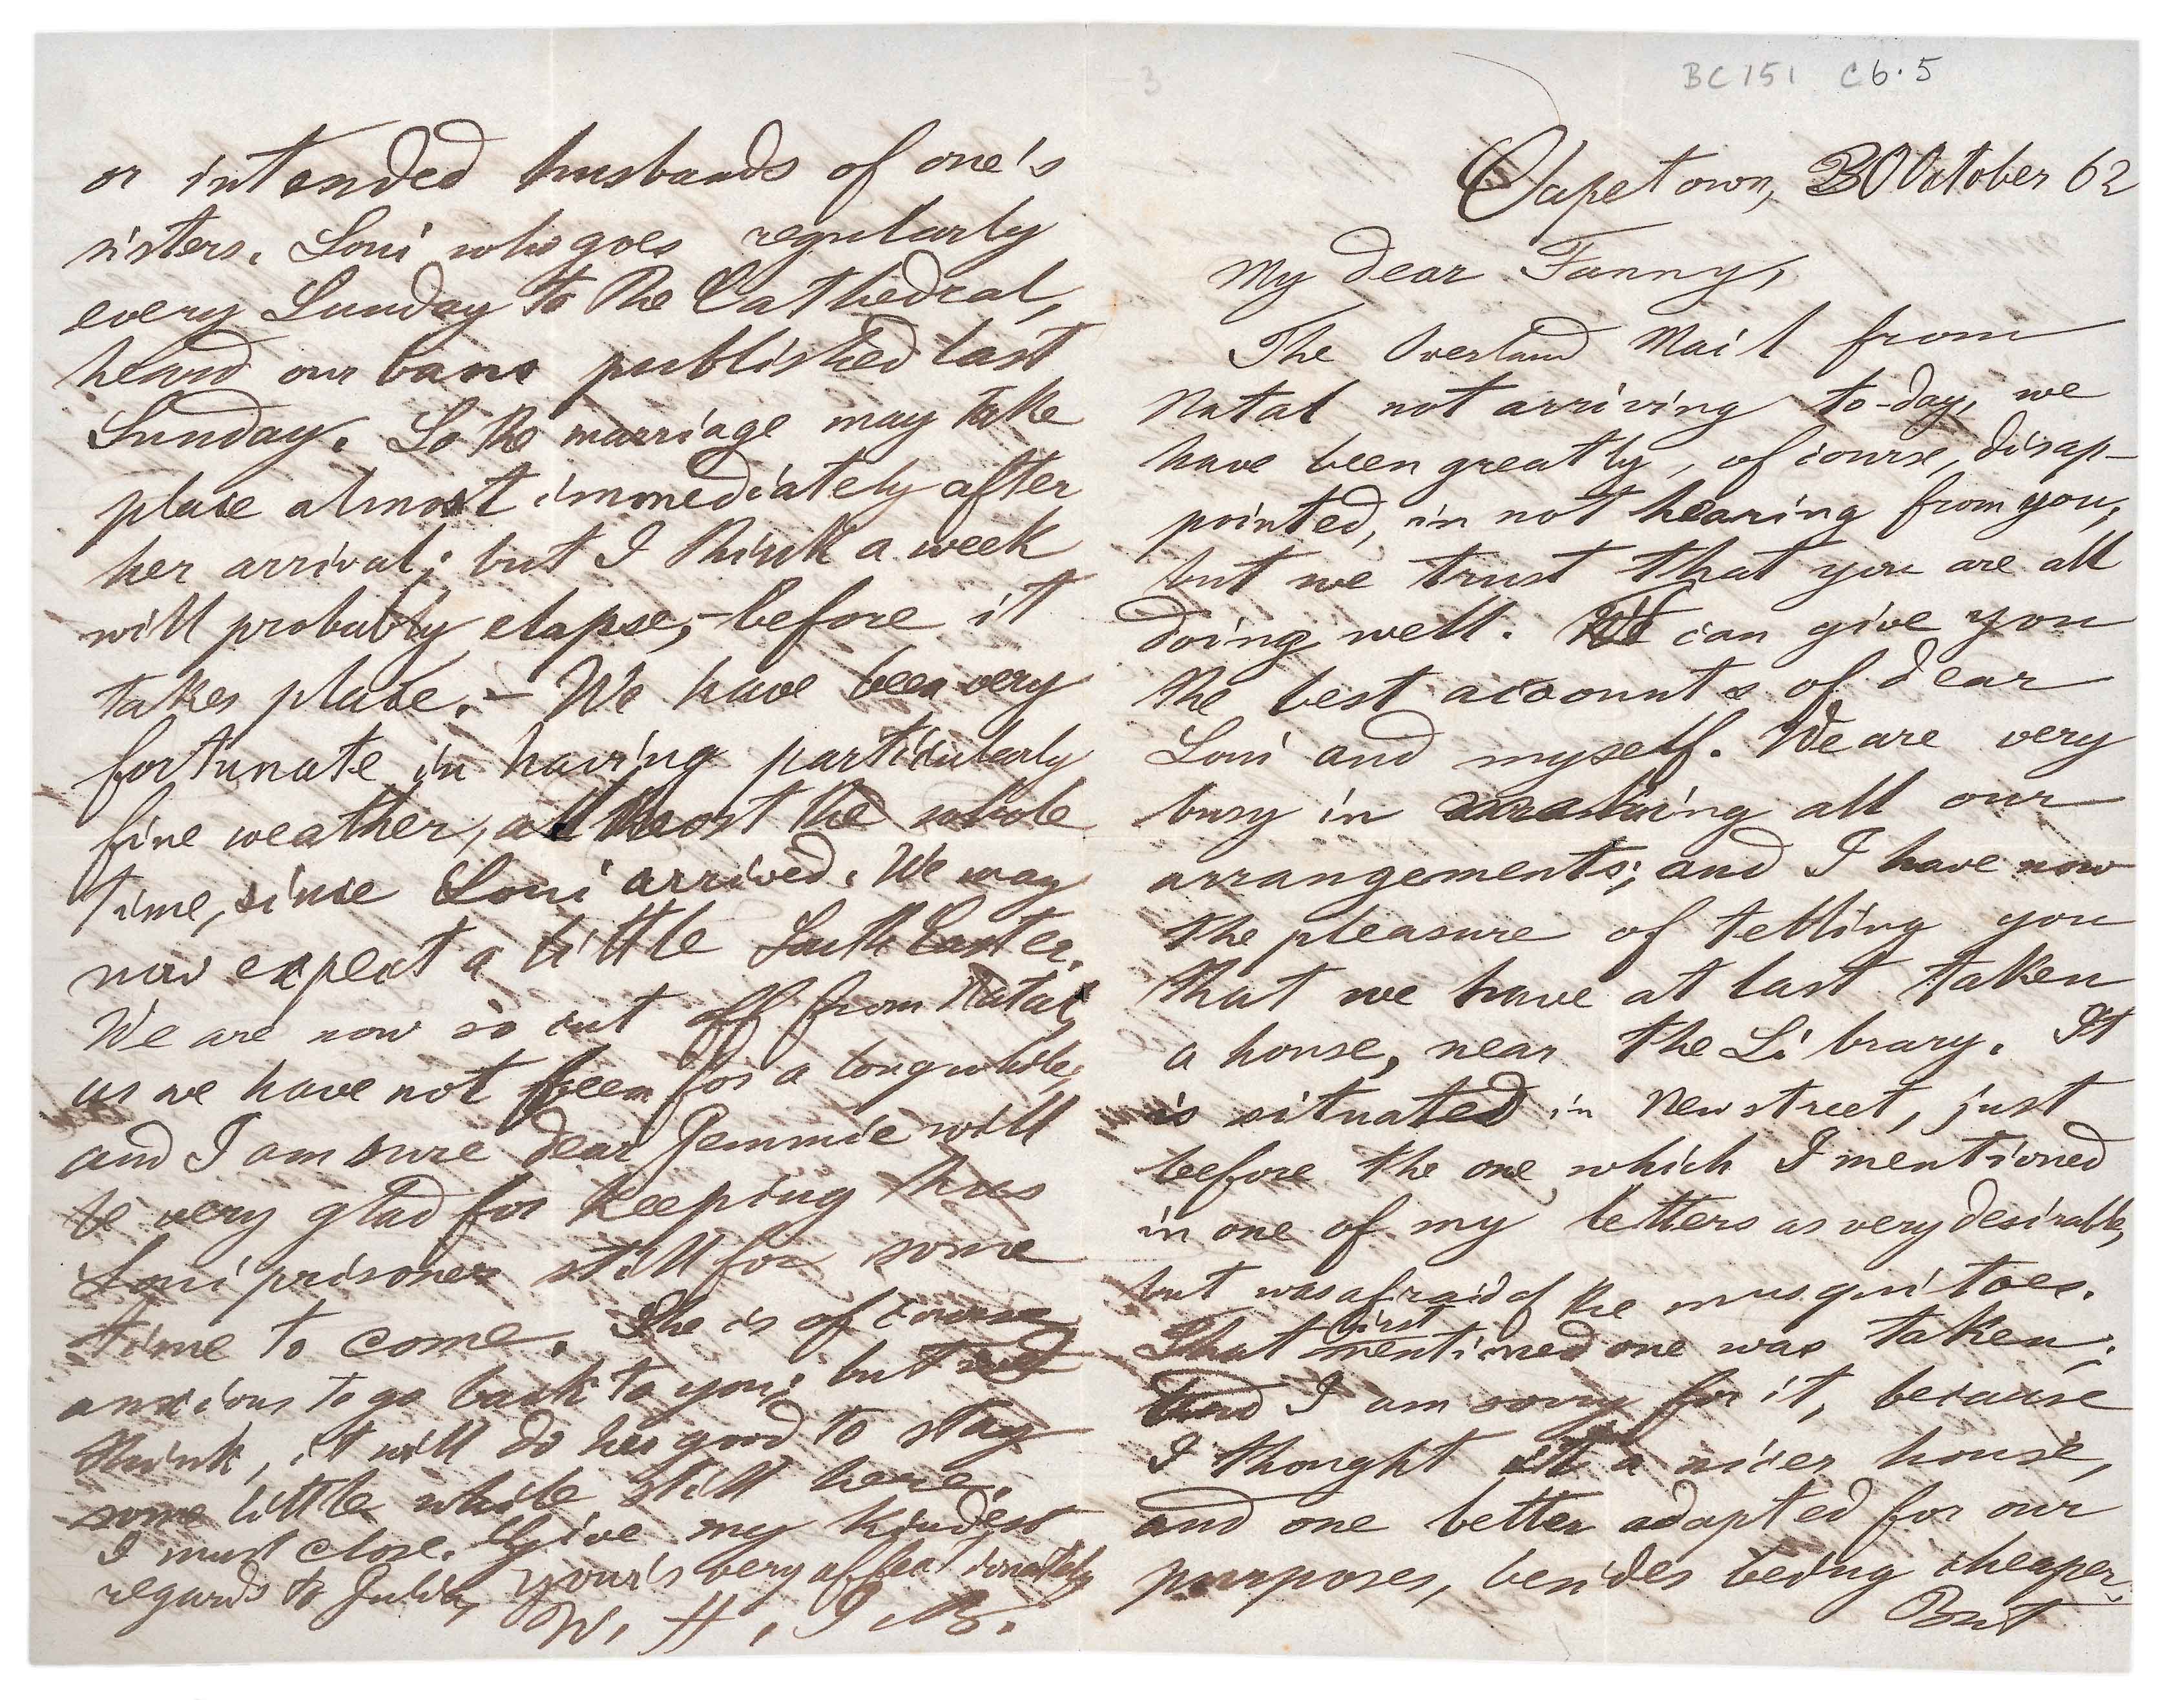 BC 151 C6.5
Capetown, 3 October 62
My dear Fanny,
The Overland Mail from
Natal not arriving to-day, we
have been greatly, of course, disap-
pointed, in not hearing from you,
but we trust that you are all
doing well. We can give you
the best accounts of dear
Loui and myself. We are very
busy in all our
arrangements; and I have now
the pleasure of telling you
that we have at last taken
a house, near the Library. It
is situated in New street, just
before the one which I mentioned
in one of my letters as very desirable,
but was afraid of the musquitoes.
That first mentioned one was taken;
and I am sorry for it, because
I thought it a nicer house,
and one better adapted for our
purposes, besides being cheaper.
But
or intended husbands of one's
sisters. Loui who goes regularly
every Sunday to the Cathedral,
heard our bans published last
Sunday. So the marriage may take
place almost immediately after
her arrival; but I think a week
will probably elapse, - before it
takes place. - We have been very
fortunate in having particularly
fine weather, almost the whole
time, since Loui arrived. We may
now expect a little South Easter.
We are now so cut off from Natal,
as we have not been for a long while;
and I am sure dear Jemmie will
be very glad for keeping thus
Loui prisoner still for some
time to come. She is of course
anxious to go back to you; but we
think, it will do her good to stay
some little while still here.
I must close. Give my kindest
regards to Julia, your's very affectionately
W. H. I. B.